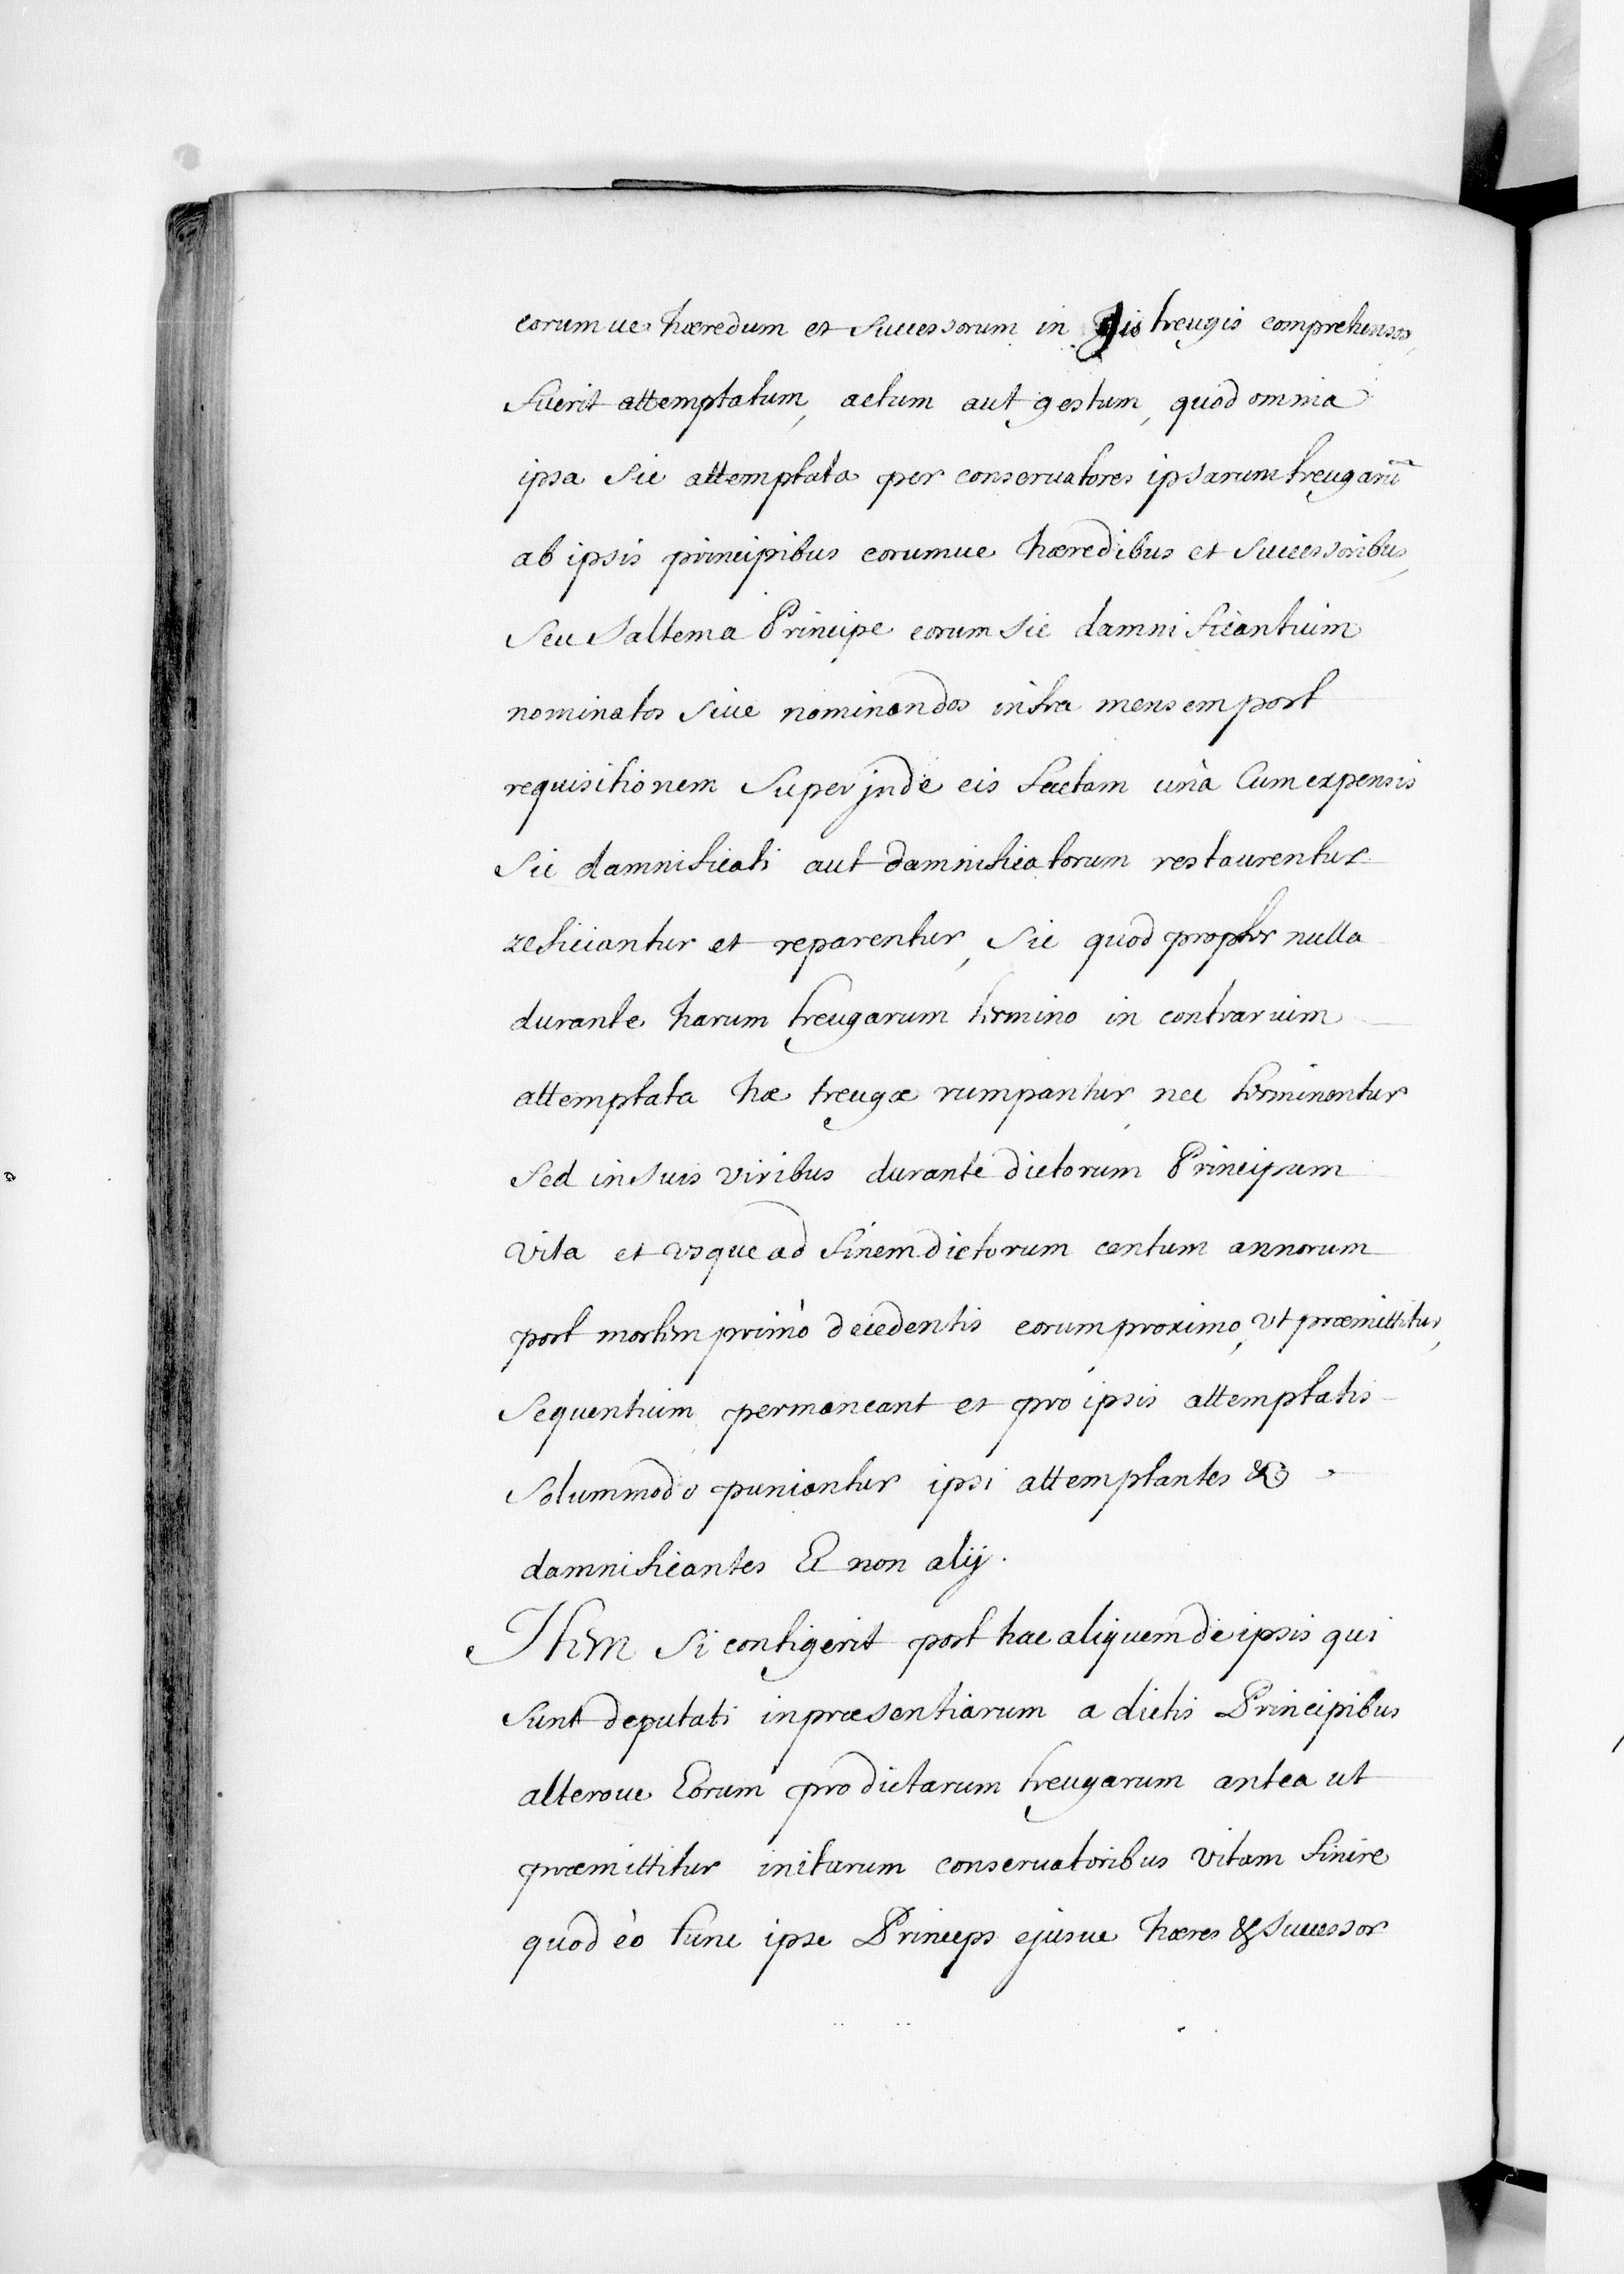 eorumue hæredum et Successorum in his treugis comprehensos,
fuerit attemptatum, actum aut gestum, quod omnia
ipsa sic attemptata per conseruatores ipsarum treugarũ
ab ipsis principibus eorumue hæredibus et Successoribus,
Seu Saltem a Principe eorum sic damnificantium
nominatos siue nominandos infra mensem post
requisitionem Super jnde eis factam unà Cum expensis
Sic damnificati aut damnificatorum restaurentur
reficiantur et reparentur, Sic quod propter nulla
durante harum treugarum termino in contrarium
attemptata hæ treugæ rumpantur nec terminentur
Sed in suis viribus durante dictorum Principum
vita et vsque ad finem dictorum centum annorum
post mortem primò decedentis eorum proximo, vt præmittitur,
Sequentium permaneant et pro ipsis attemptatis
Solummodo puniantur ipsi attemptantes &
damnificantes Et non alij.
Item Si contigerit post hac aliquem de ipsis qui
Sunt deputati inpræsentiarum a dictis Principibus
alteroue Eorum pro dictarum treugarum antea ut
præmittitur initarum conseruatoribus vitam finire
quod eò tunc ipse Princeps ejusue hæres & Successor